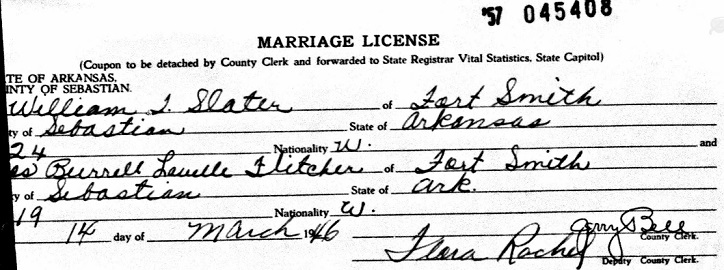 '57 045408
MARRIAGE LICENSE
(Coupon to be detached by County Clerk and forwarded to State Registrar Vital Statistics, State Capitol)
TE OF ARKANSAS.
INTY OF SEBASTIAN.
William I. Slater of Fort Smith
ty of Sebastian State of Arkansas
24 Nationality W. and
ss Burrell Lavelle Fletcher of Fort Smith
y of Sebastian State of Ark.
19 Nationality W.
14 day of March 1946
Jerry Bell
County Clerk.
Flora Rachel
Deputy County Clerk.